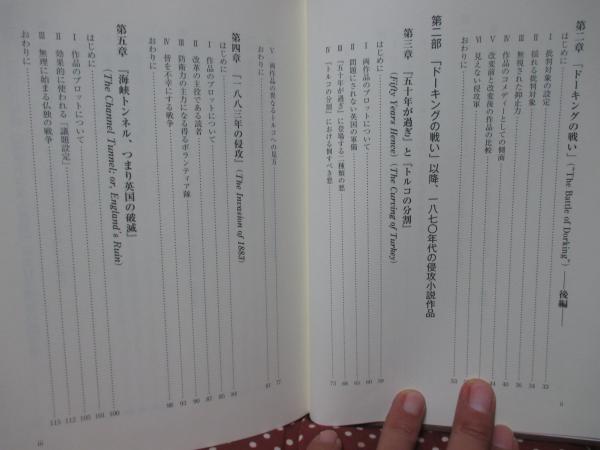 第二章 「ドーキングの戦い」("The Battle of Dorking") ――後編――
はじめに
Ⅰ 批判対象の設定 33
Ⅱ 揺れる批判対象 34
Ⅲ 無視された抑止力 36
Ⅳ 作品のコメディとしての側面
Ⅴ 改変前と改変後の作品の比較
Ⅵ 見えない侵攻軍
おわりに 53
第二部 「ドーキングの戦い」以降、一八七〇年代の侵攻小説作品
第三章 『五十年が過ぎ』と『トルコの分割』
(Fifty Years Hence) (The Carving of Turkey)
はじめに 59
Ⅰ 両作品のプロットについて 60
Ⅱ 問題にされない英国の軍備 66
Ⅲ 『五十年が過ぎ』に登場する二種類の悪 68
Ⅳ 『トルコの分割』における倒すべき悪 73
ii
Ⅴ 両作品の異なるトルコへの見方 77
おわりに 81
第四章 『一八八三年の侵攻』(The Invasion of 1883)
はじめに 84
Ⅰ 作品のプロットについて 85
Ⅱ 改革の主役である読者 87
Ⅲ 防衛力の主力になる得るボランティア隊
Ⅳ 皆を不幸にする戦争 93
おわりに 98
第五章 『海峡トンネル、つまり英国の破滅』
(The Channel Tunnel; or, England's Ruin)
はじめに 100
Ⅰ 作品のプロットについて 101
Ⅱ 効果的に使われる「議題設定」 105
Ⅲ 無理に始まる仏独の戦争 112
おわりに 115
iii